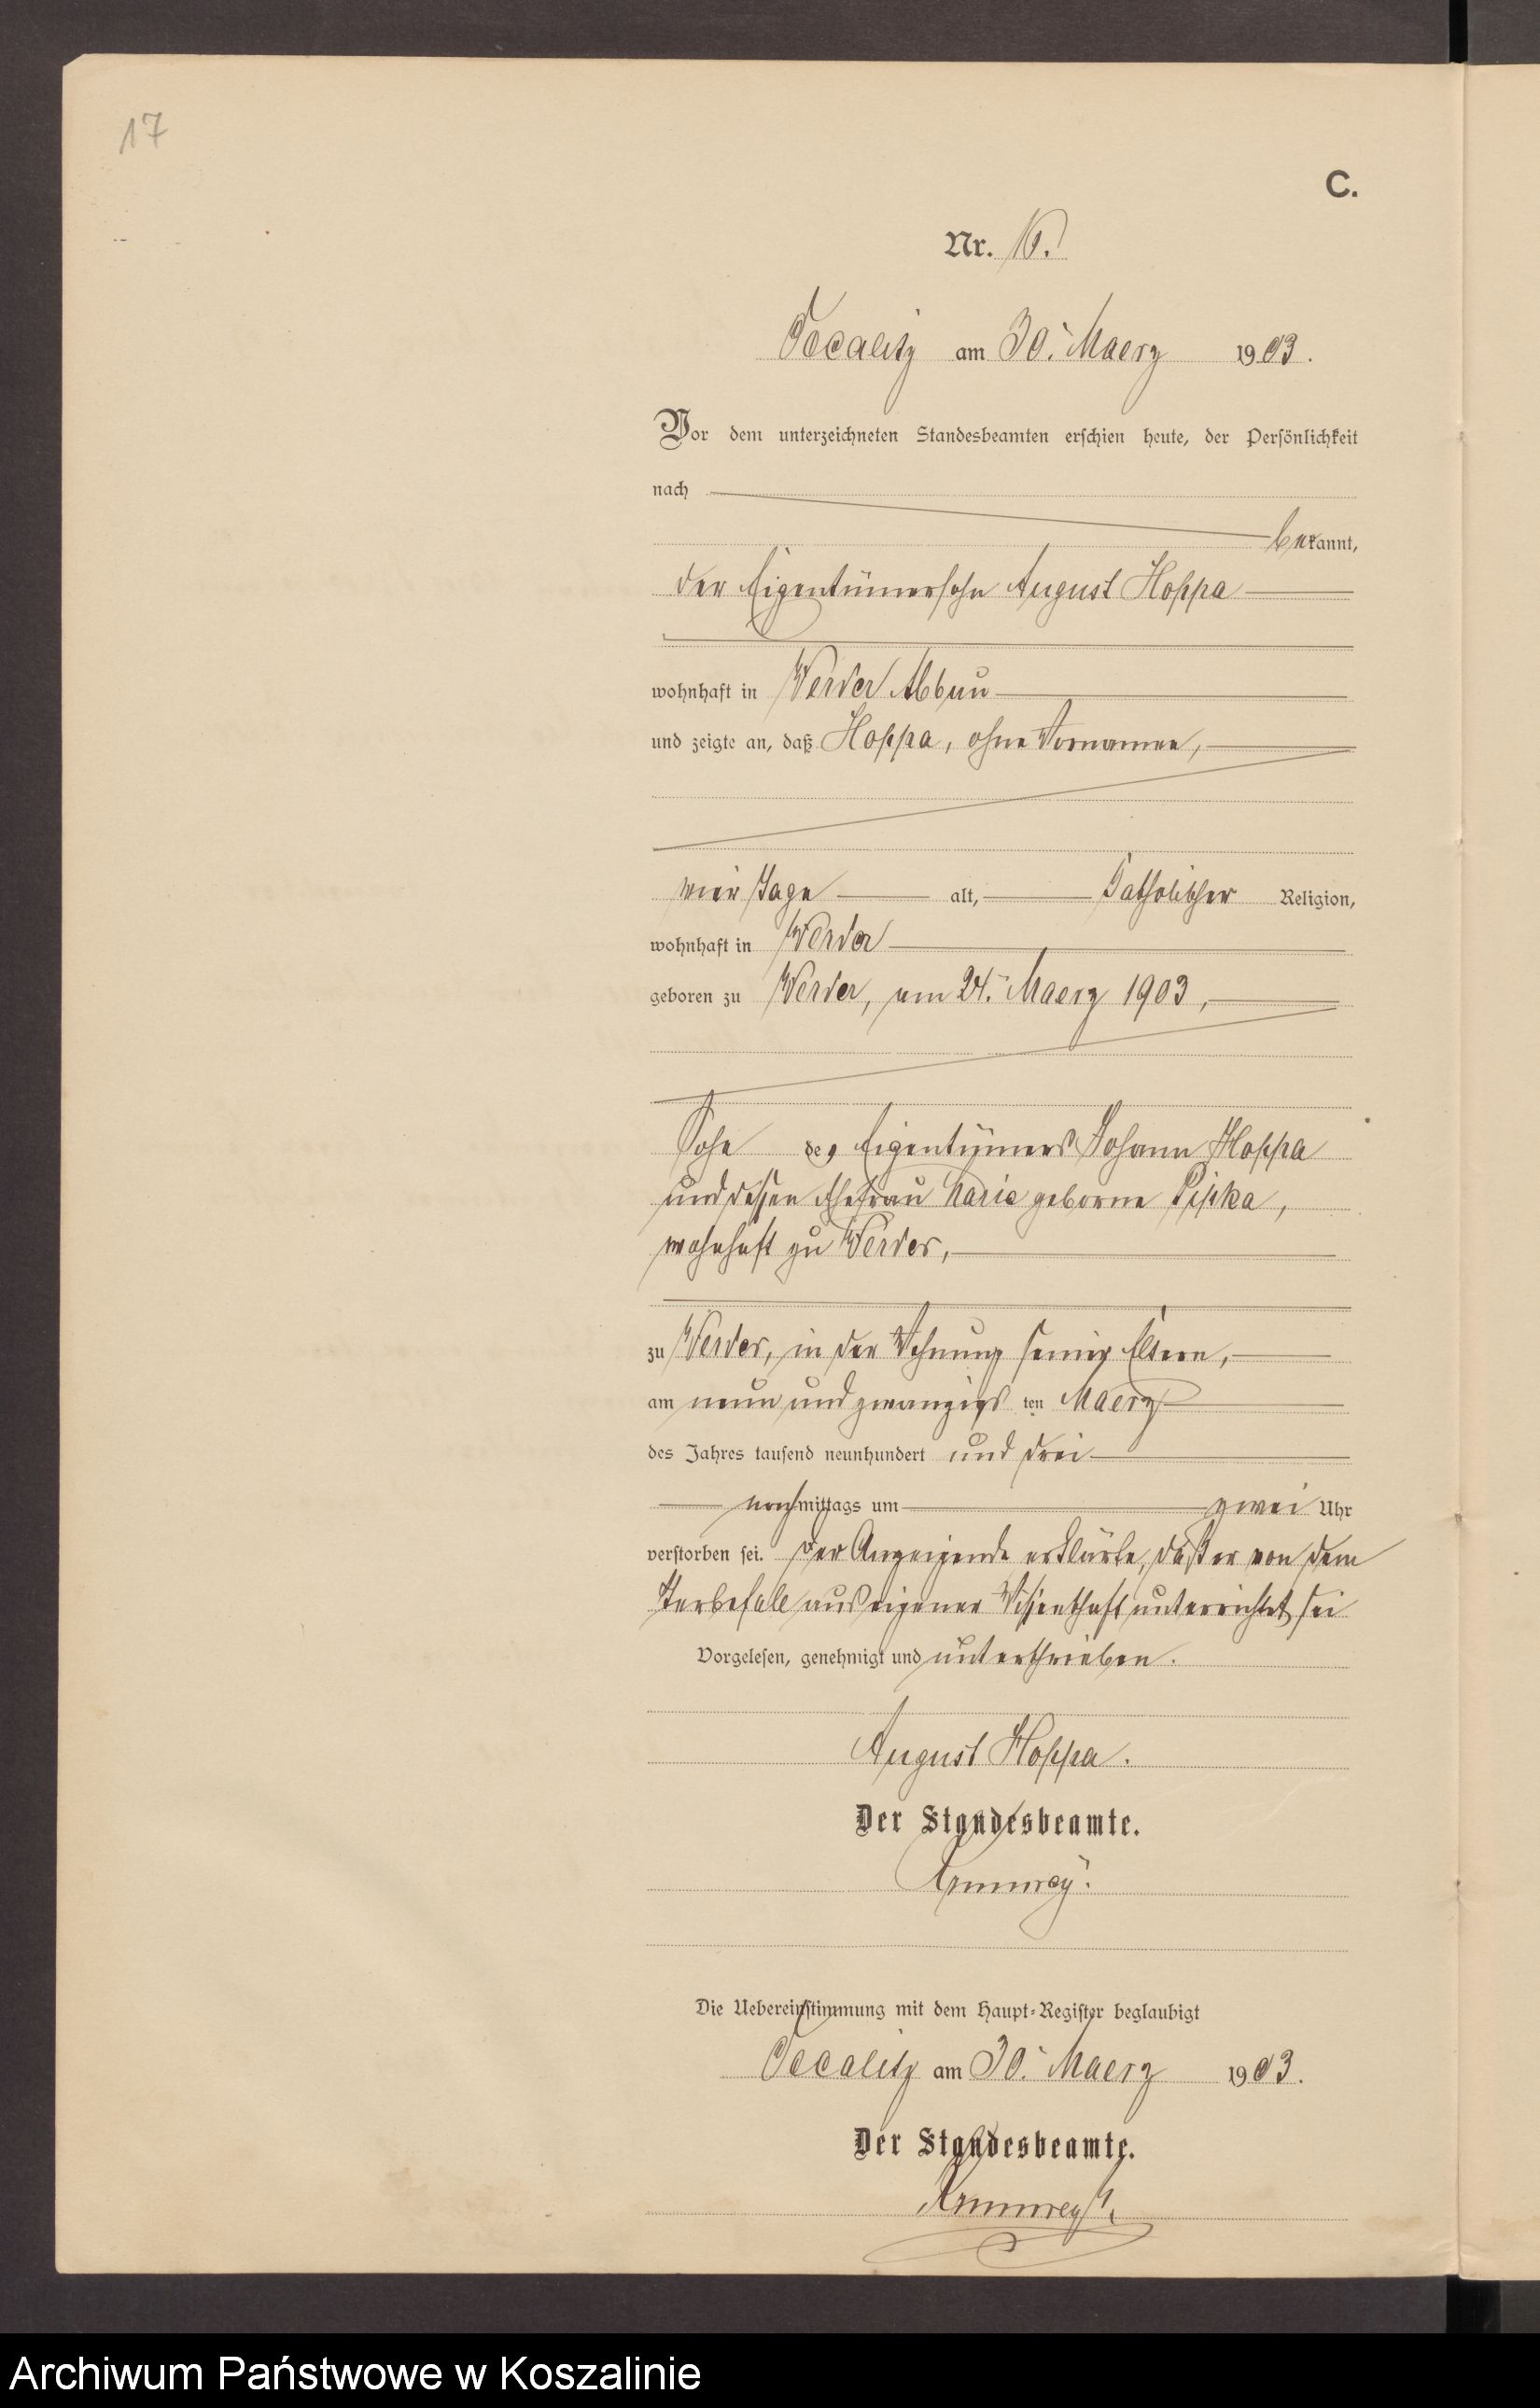 17
C.
Nr. 16.
am 30. Maerz 1903.
Vor dem unterzeichneten Standesbeamten erschien heute, der Persönlichkeit
nach
bekannt,
der Eigentümersohn August Hoppa
wohnhaft in Werder Abbau
und zeigte an, daß Hoppa, ohne Vornamen,
vier Tage alt, katholischer Religion,
wohnhaft in Werder
geboren zu Werder, am 24. Maerz 1903,
Sohn des Eigentümers Johann Hoppa
und dessen Ehefrau Marie geborne
wohnhaft zu Werder,
zu Werder, in der Wohnung seiner Eltern,
am neun und zwanzigs ten Maerz
des Jahres tausend neunhundert und drei
nachmittags um zwei Uhr
verstorben sei. Der Anzeigende erklärte, daß er von dem
Sterbefall aus eigener Wissenschaft unterrichtet sei
Vorgelesen, genehmigt und unterschrieben.
August Hoppa.
Der Standesbeamte.
Die Uebereinstimmung mit dem Haupt-Register beglaubigt
am 30. Maerz 1903.
Der Standesbeamte.
Archiwum Państwowe w Koszalinie